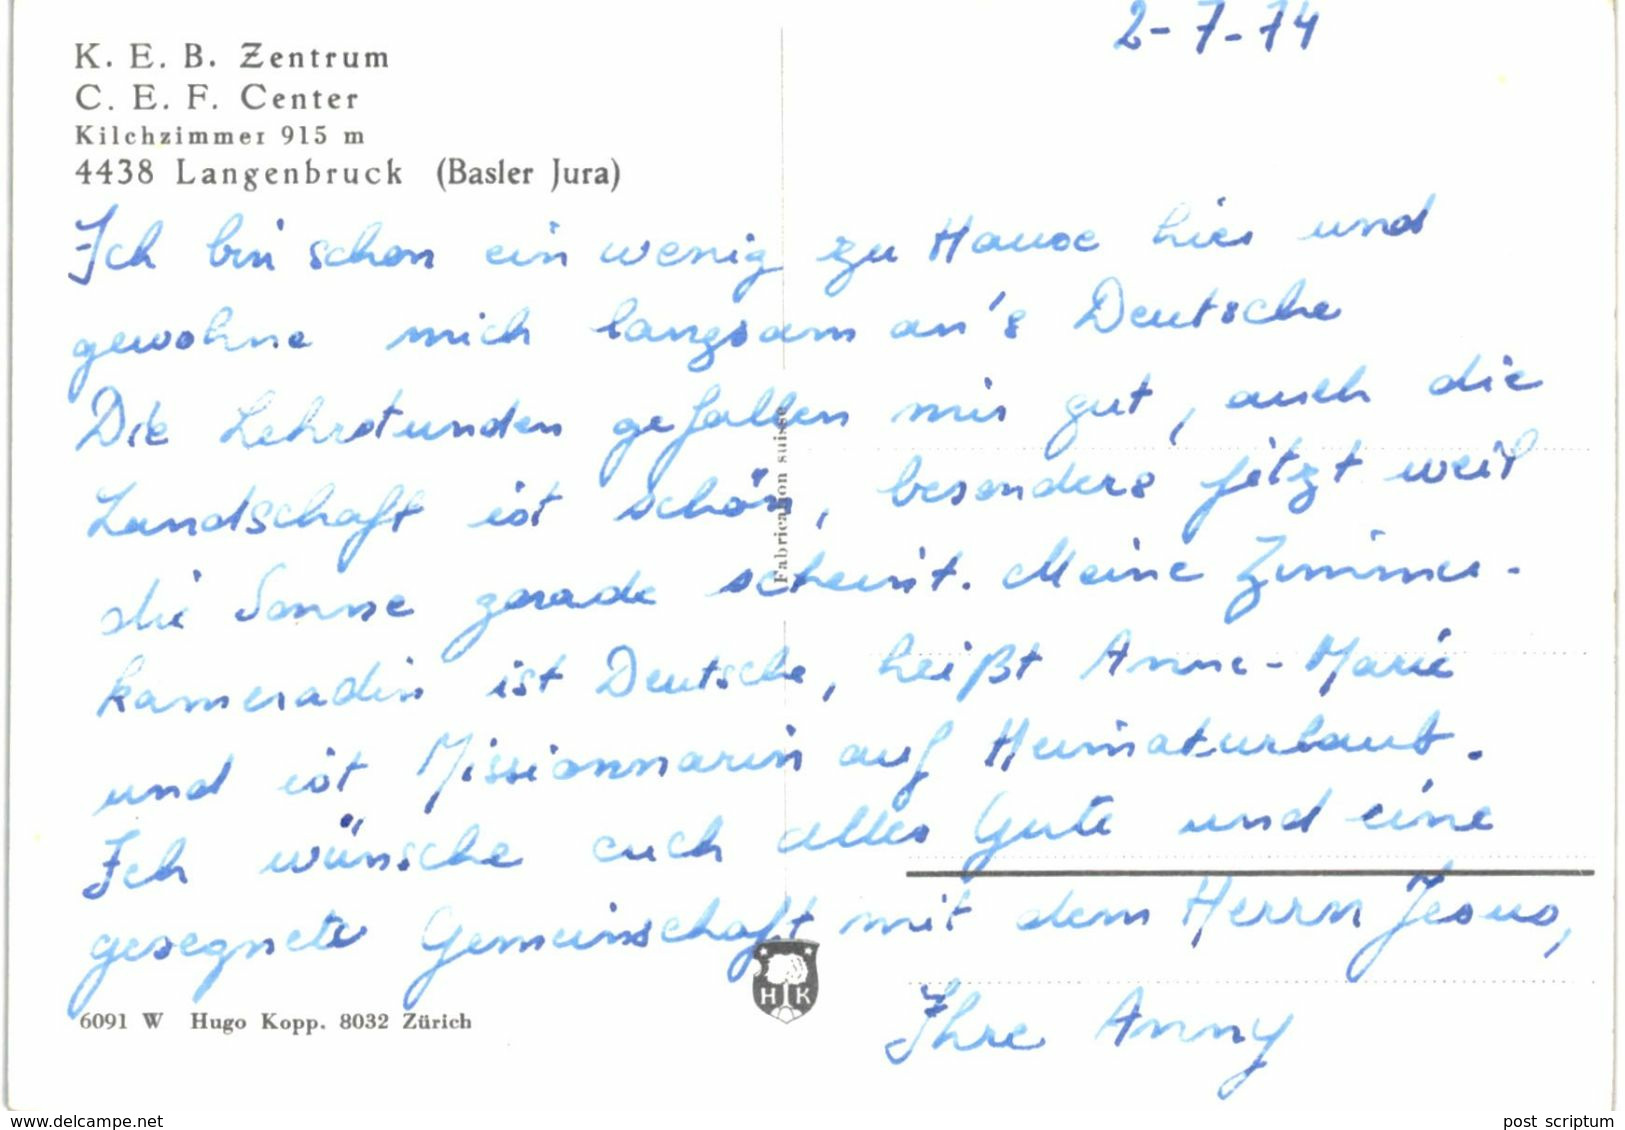 2-7-74
K. E. B. Zentrum
C. E. F. Center
Kilchzimmer 915 m
4438 Langenbruck (Basler Jura)
Ich bin schon ein wenig zu Hause hier und
gewohne mich langsam an's Deutsche
Die Lehrstunden gefallen mir gut, auch die
Landschaft ist schön, besonders jetzt weil
die Sonne gerade scheint. Meine Zimmer-
kameradin ist Deutsche, heißt Anne-Marie
und ist Missionnarin auf Heimaturlaub.
Ich wünsche euch alles Gute und eine
gesegnete Gemeinschaft mit dem Herrn Jesus,
Ihre Anny
Fabrication suisse
H K
6091 W Hugo Kopp. 8032 Zürich
www.delcampe.net
post_scriptum